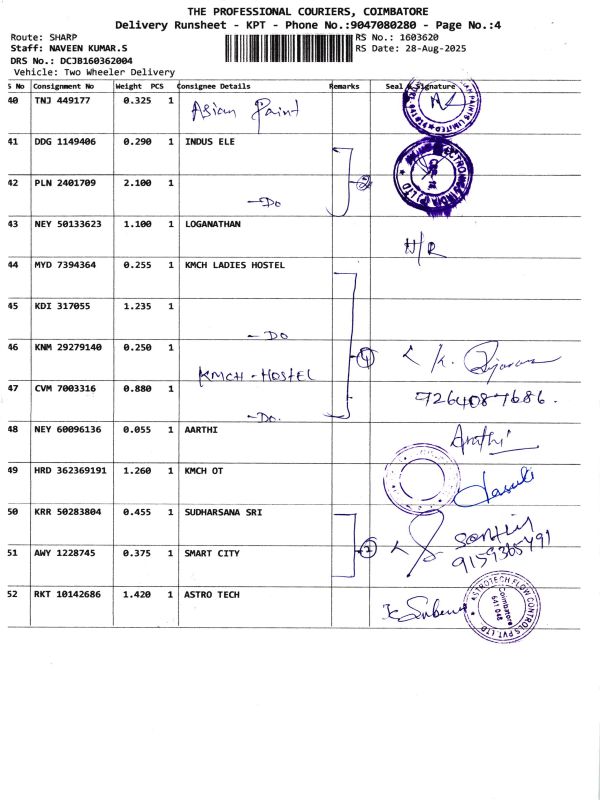 THE PROFESSIONAL COURIERS, COIMBATORE
Delivery Runsheet - KPT - Phone No.:9047080280 - Page No.:4
Route: SHARP
RS No.: 1603620
Staff: NAVEEN KUMAR.S
RS Date: 28-Aug-2025
DRS No.: DCJB160362004
Vehicle: Two Wheeler Delivery
S No Consignment No Weight PCS Consignee Details Remarks Seal & Signature
40 TNJ 449177 0.325 1 Asian Paint
41 DDG 1149406 0.290 1 INDUS ELE
42 PLN 2401709 2.100 1 -Do
2
43 NEY 50133623 1.100 1 LOGANATHAN N/R
44 MYD 7394364 0.255 1 KMCH LADIES HOSTEL
45 KDI 317055 1.235 1 -Do
46 KNM 29279140 0.250 1 KMCH-HOSTEL
4 K.
47 CVM 7003316 0.880 1 -Do.
7264087686.
48 NEY 60096136 0.055 1 AARTHI Arathi
49 HRD 362369191 1.260 1 KMCH OT
50 KRR 50283804 0.455 1 SUDHARSANA SRI
51 AWY 1228745 0.375 1 SMART CITY
2 9159365491
52 RKT 10142686 1.420 1 ASTRO TECH
ASTROTECH FLOW CONTROLS PVT. LTD
Coimbatore
641 048